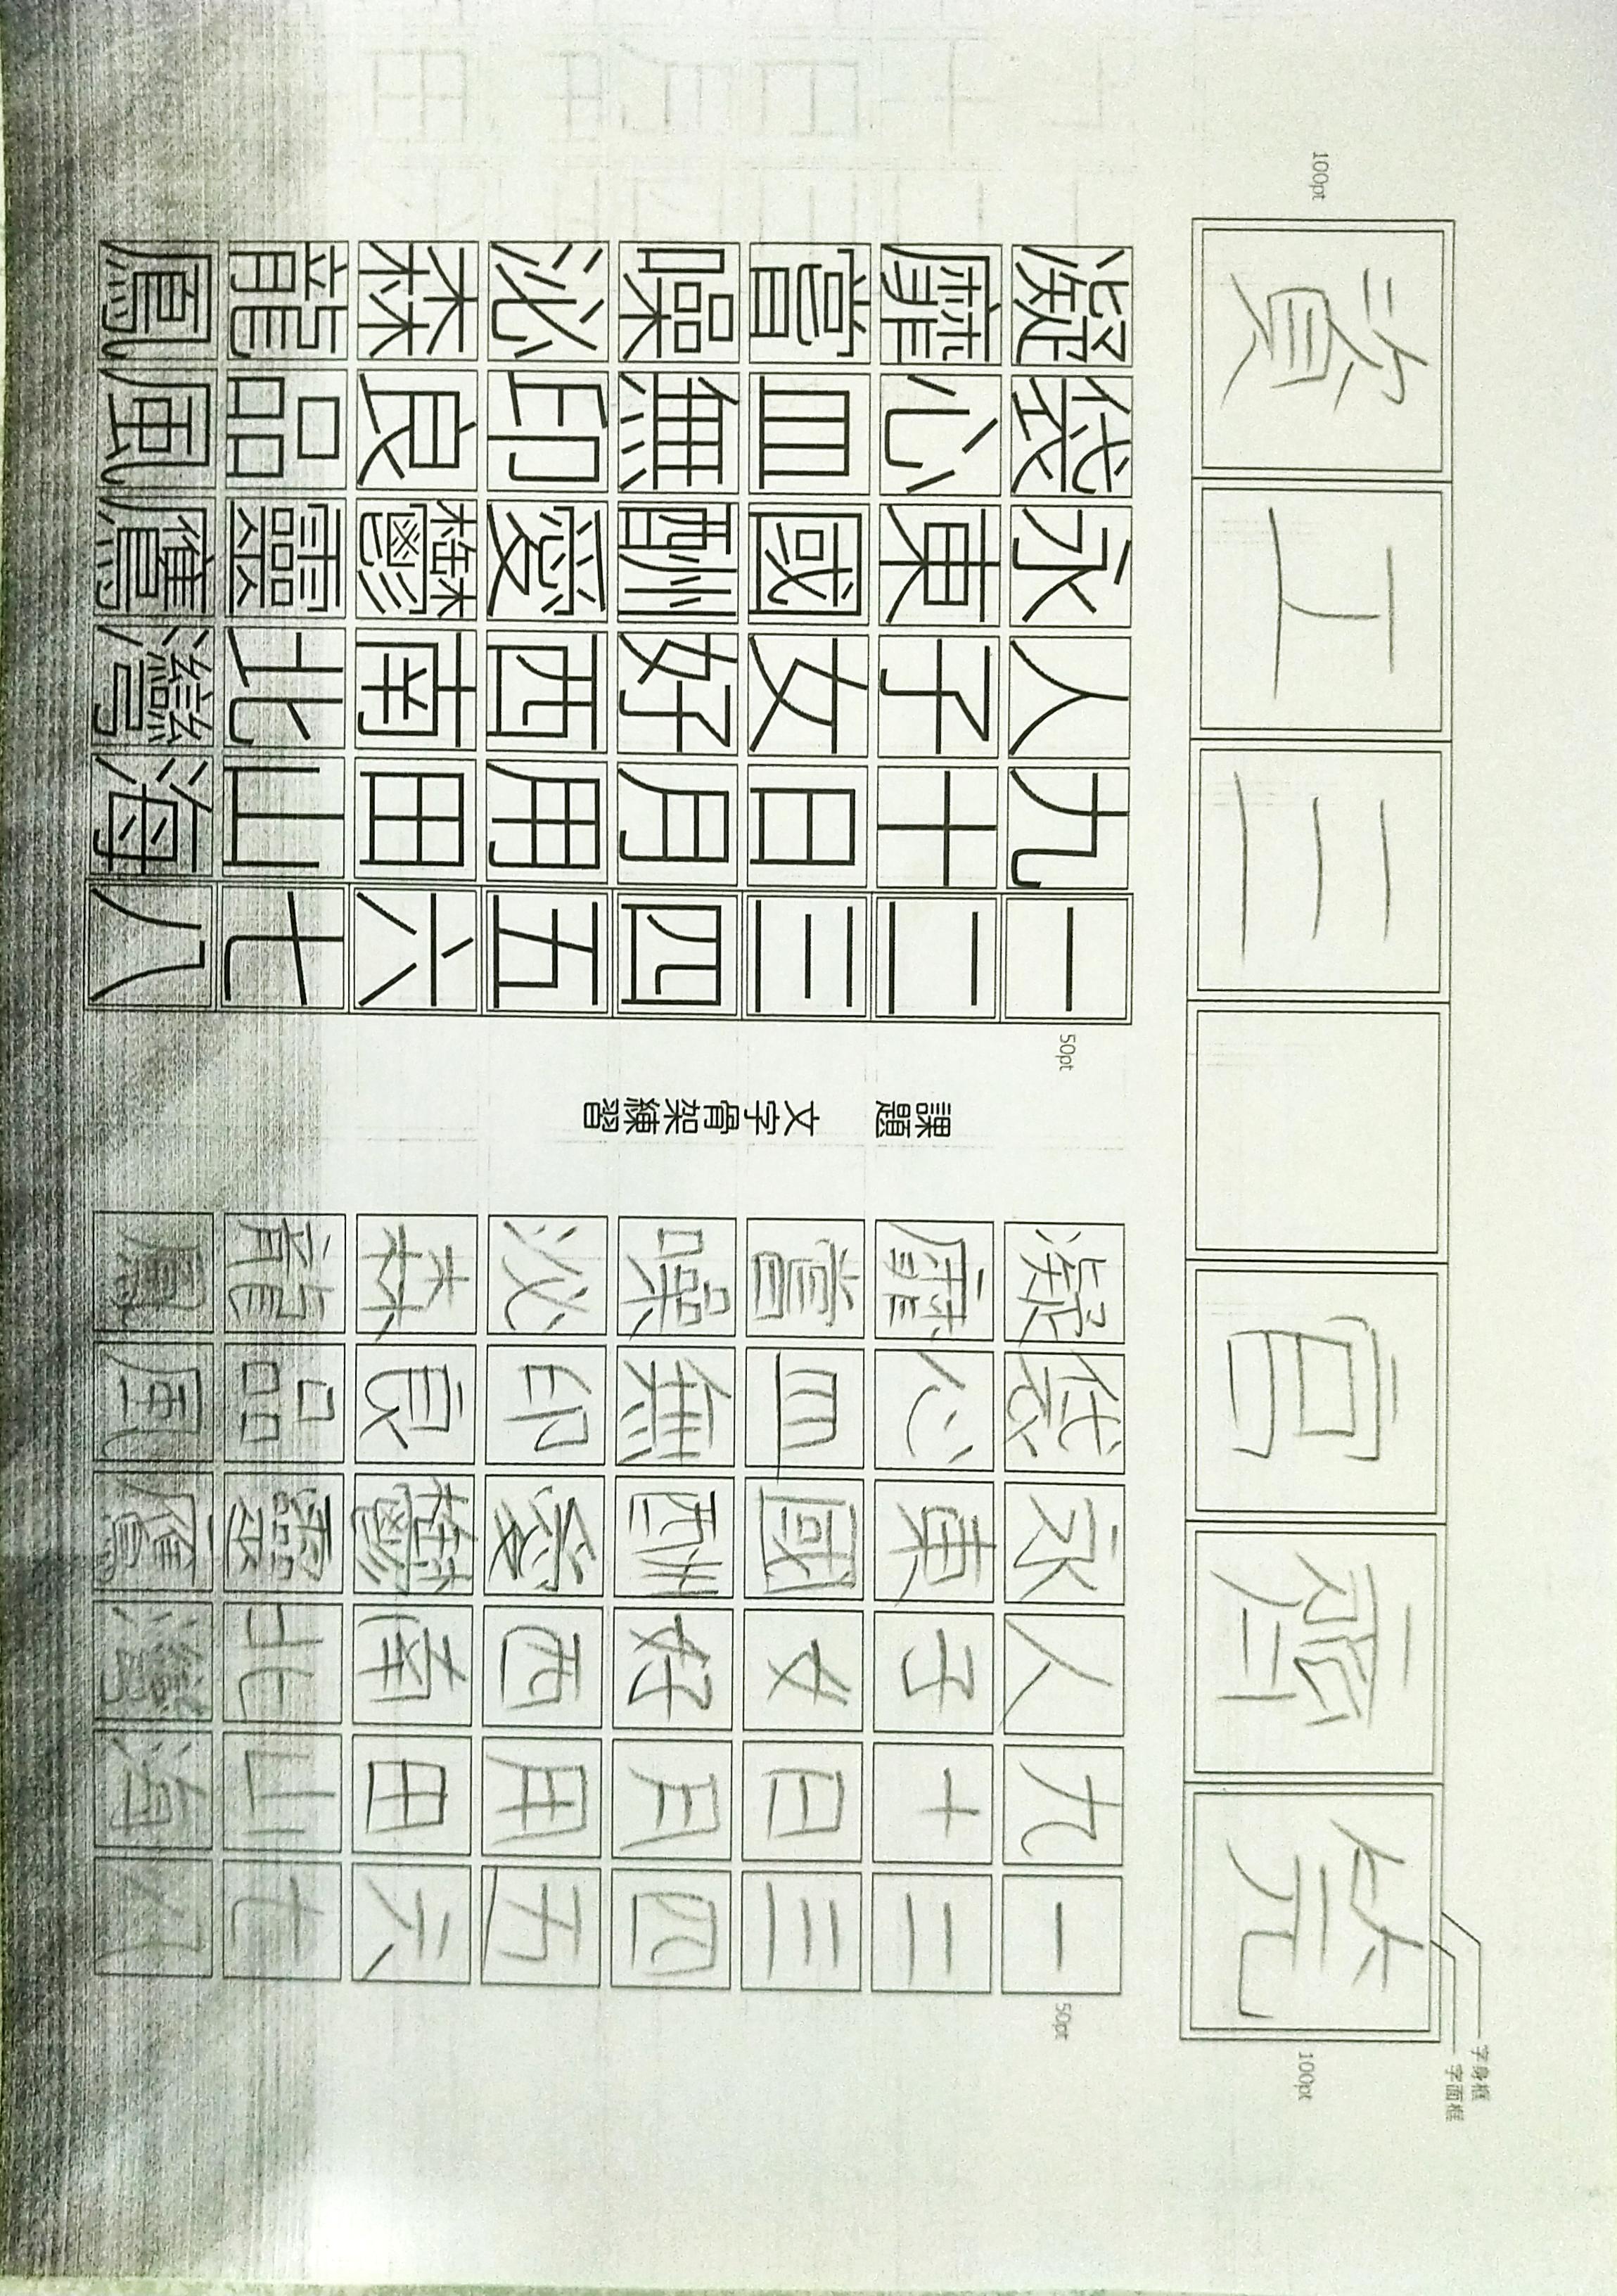 字身框
字面框
資工三 官齊筦
100pt
100pt
凝袋永人九一
靡心東子十二
嘗皿國女日三
噪無酬好月四
泌印愛西用五
森良鬱南田六
龍品靈北山七
鳳風鷹灣海八
50pt
課題 文字骨架練習
凝袋永人九一
靡心東子十二
嘗皿國女日三
噪無酬好月四
泌印愛西用五
森良鬱南田六
龍品靈北山七
鳳風鷹灣海八
50pt